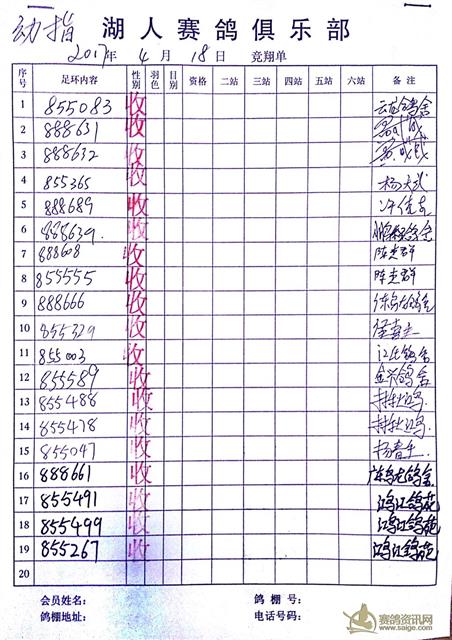 动指 湖人赛鸽俱乐部
2017年 4 月 18 日 竞翔单
序号 足环内容 性别 羽色 目别 资格 二站 三站 四站 五站 六站 备注
1 855083 收
2 888631 收
3 888632 收
4 855365 收
5 888689 收 许佳吉
6 888639. 收
7 888608 收 陈光群
8 855555 收 陈光群
9 888666 收
10 855329 收
11 855003 收 江氏鸽舍
12 855589 收 鸽舍
13 855488 收
14 855478 收
15 855047 收 杨春生
16 888661 收
17 855491 收
18 855499 收
19 855267 收
20
会员姓名: 鸽棚号:
鸽棚地址: 电话号码:
赛鸽资讯网
www.saige.com